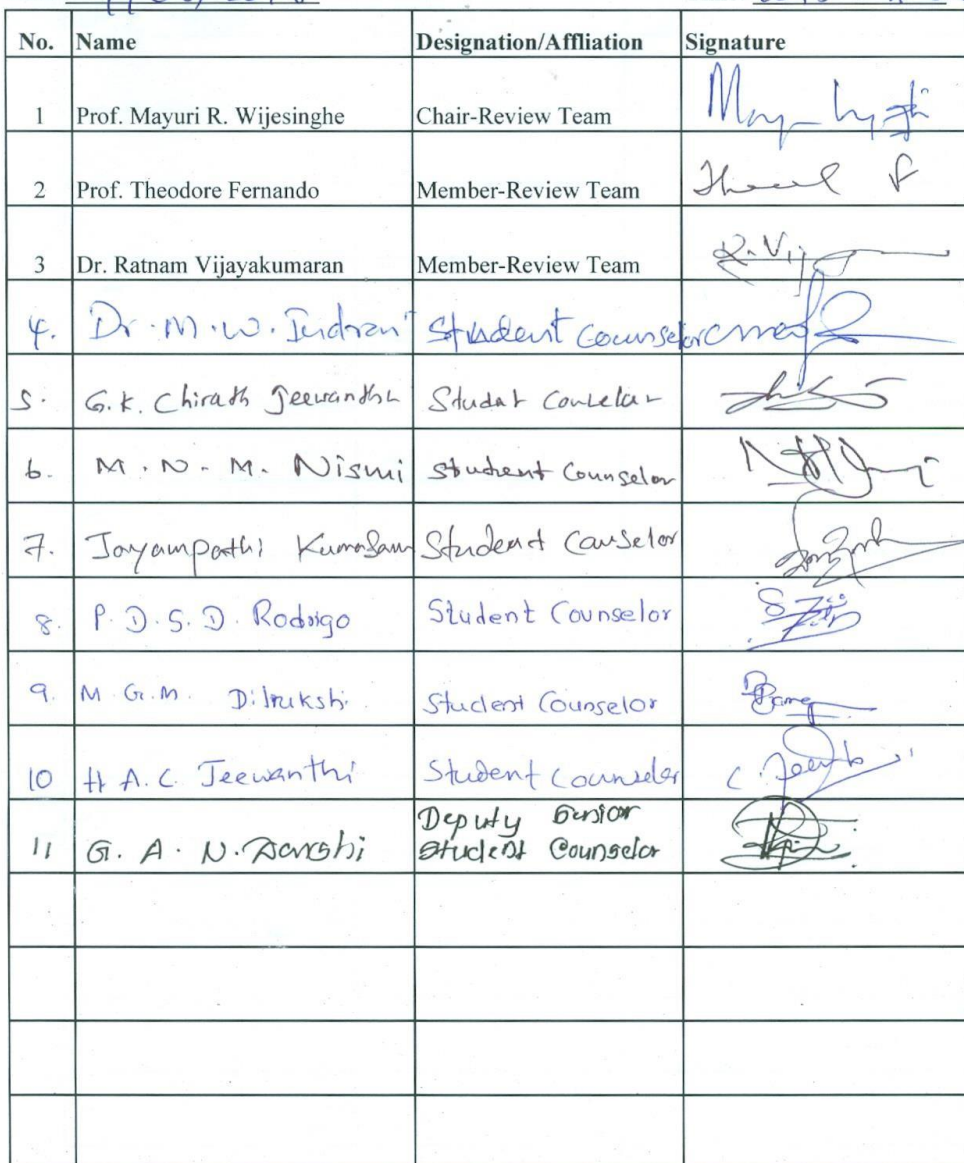 No. Name Designation/Affliation Signature
1 Prof. Mayuri R. Wijesinghe Chair-Review Team
2 Prof. Theodore Fernando Member-Review Team
3 Dr. Ratnam Vijayakumaran Member-Review Team R. Vij
4. Dr. M. W. Indrani Student Counselor
5. G. K. Chirath Jeewantha Student
6. M. N. M. Nismi Student Counselor
7. Jayampathi Student Counselor
8. P. D. S. D. Rodrigo Student Counselor
9. M. G. M. Dilrukshi Student Counselor
10 H A. C. Jeewanthi Student Counselor
Deputy Senior
11 G. A. N. Student Counselor